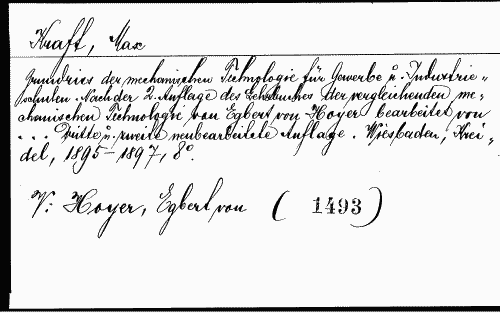 Kraft, Max
Grundriss der mechanischen Technologie für Gewerbe u. Industrie-
schulen. Nach der 2. Auflage des Lehrbuches der vergleichenden me-
chanischen Technologie von Egbert von Hoyer bearbeitet von
... Dritte u. zweite neubearbeitete Auflage. Wiesbaden, Krei-
del, 1895-1897, 8°.
V: Hoyer, Egbert von ( 1493 )